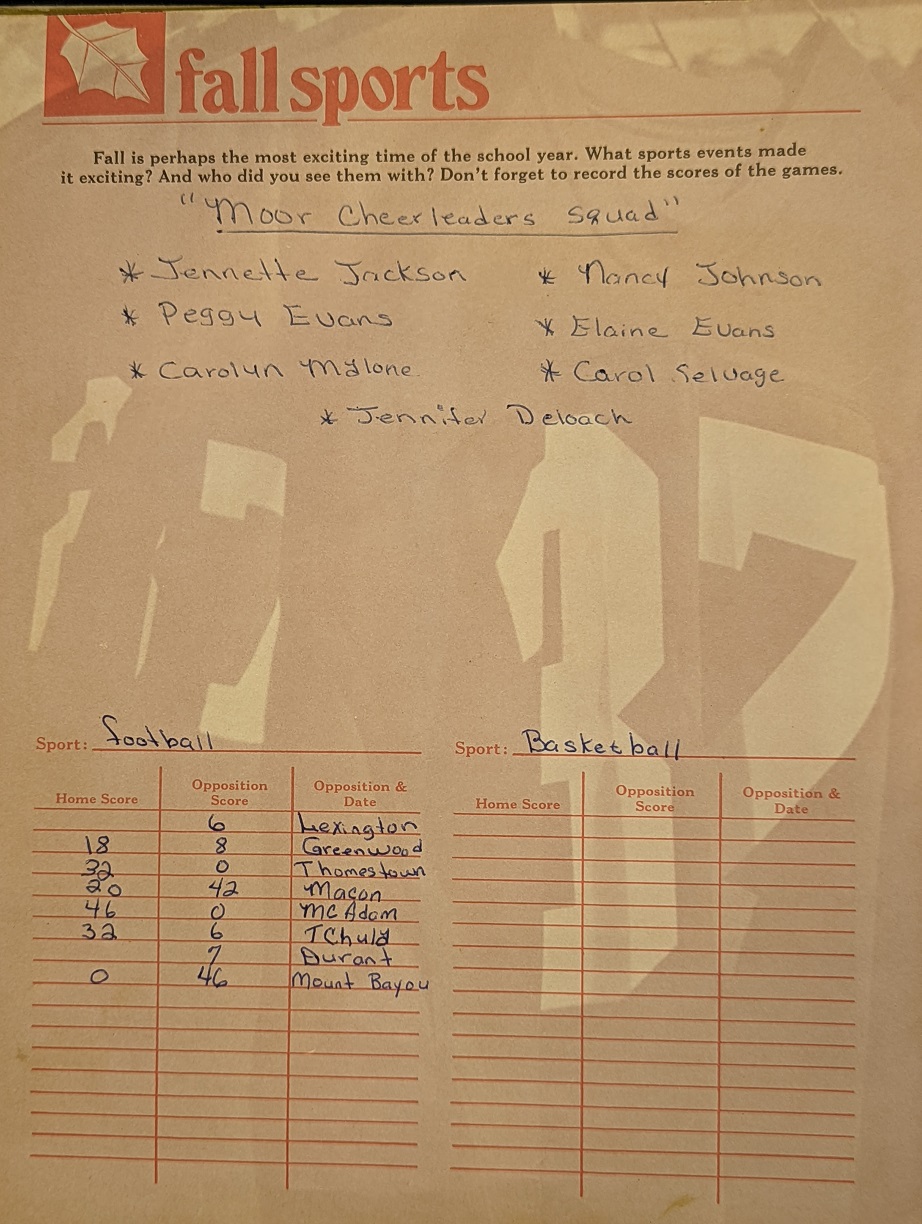 fall sports
Fall is perhaps the most exciting time of the school year. What sports events made
it exciting? And who did you see them with? Don't forget to record the scores of the games.
"Moor Cheerleaders Squad"
* Jennette Jackson * Nancy Johnson
* Peggy Evans * Elaine Evans
* Carolyn Malone * Carol Selvage
* Jennifer Deloach
Sport: football
Home Score Opposition Score Opposition & Date
6 Lexington
18 8 Greenwood
32 0 Thomestown
20 42 Macon
46 0 McAdam
32 6 TChula
7 Durant
0 46 Mount Bayou
Sport: Basketball
Home Score Opposition Score Opposition & Date